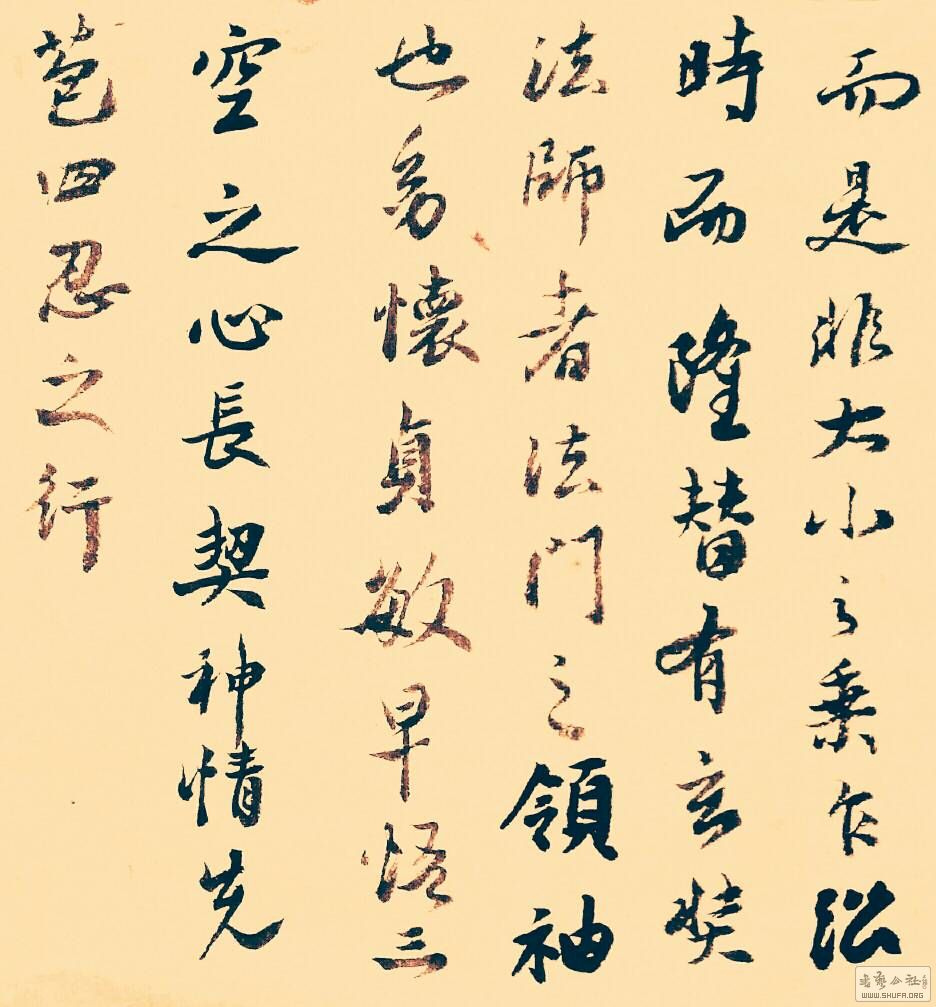 而是非大小之乘乍沿
時而隆替有玄奘
法師者法門之領袖
也幼懷貞敏早悟三
空之心長契神情先
苞四忍之行
WWW.SHUFA.ORG